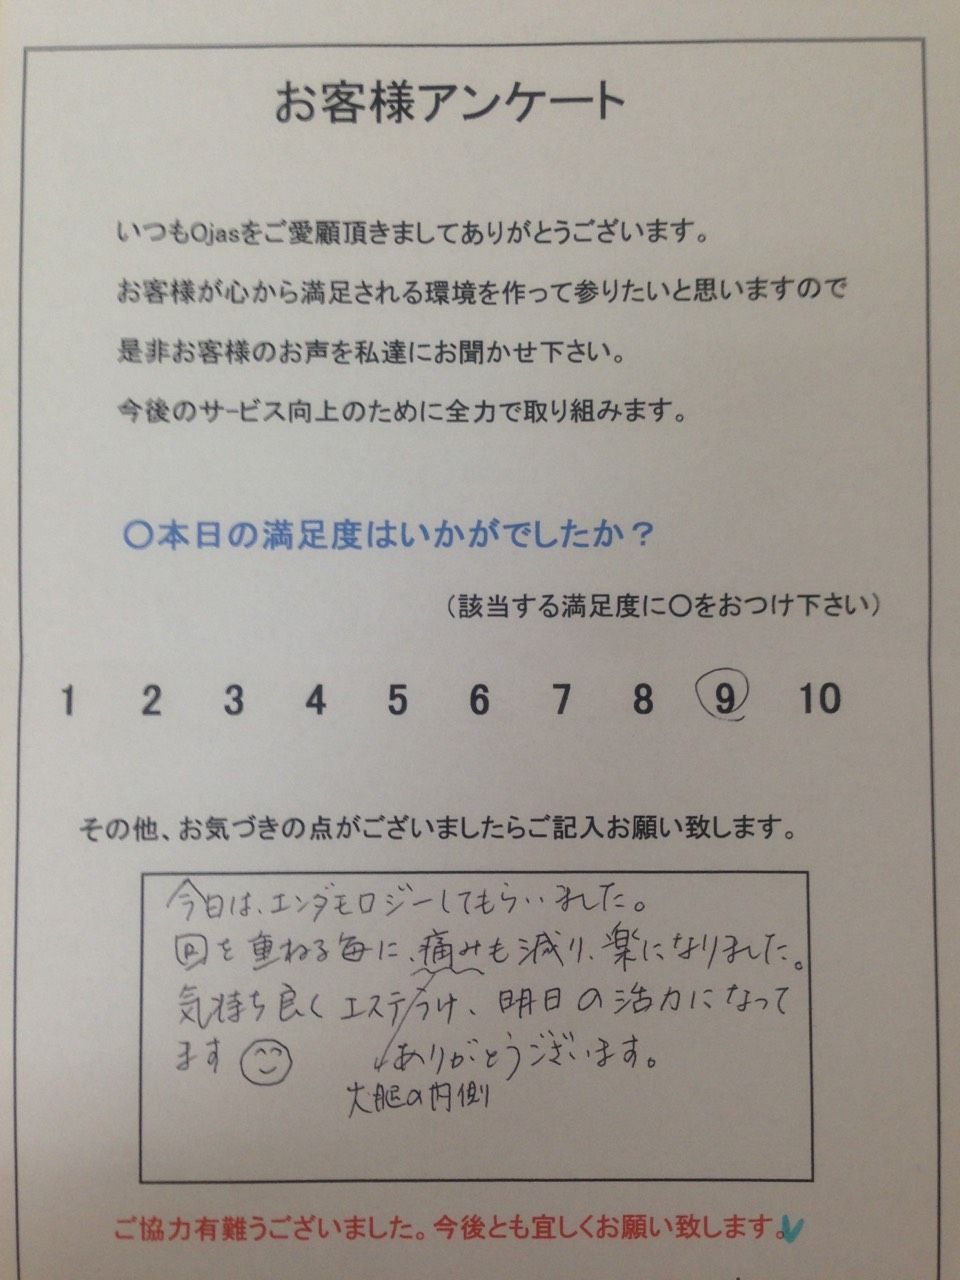 お客様アンケート
いつもOjasをご愛顧頂きましてありがとうございます。
お客様が心から満足される環境を作って参りたいと思いますので
是非お客様のお声を私達にお聞かせ下さい。
今後のサービス向上のために全力で取り組みます。
〇本日の満足度はいかがでしたか？
（該当する満足度に〇をおつけ下さい）
1 2 3 4 5 6 7 8 9 10
その他、お気づきの点がございましたらご記入お願い致します。
今日は、エンダモロジーしてもらいました。
回を重ねる毎に、痛みも減り、楽になりました。
気持ち良くエステうけ、明日の活力になって
ます ありがとうございます。
大腿の内側
ご協力有難うございました。今後とも宜しくお願い致します。